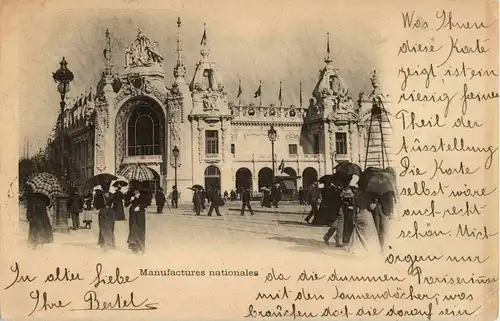 Was Ihnen
diese Karte
zeigt ist ein
riesig feiner
Theil der
Ausstellung
Die Karte
selbst wäre
auch recht
schön. Mich
ärgern nur
da die dummen Pariserinen
mit den Sonnendächer, was
brauchen dort die darauf sein.
Manufactures nationales
In alter Liebe
Ihre Bertel